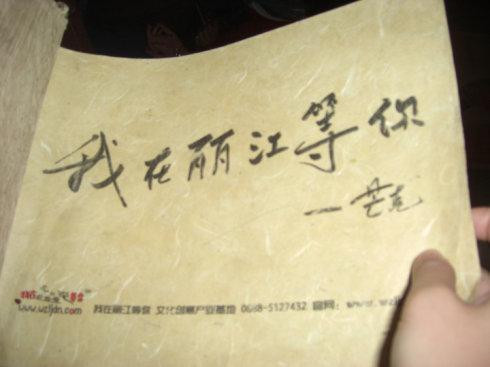 我在丽江等你
一芒克
www.wzljdn.com 我在丽江等你 文化创意产业基地 0888-5127432 官网: